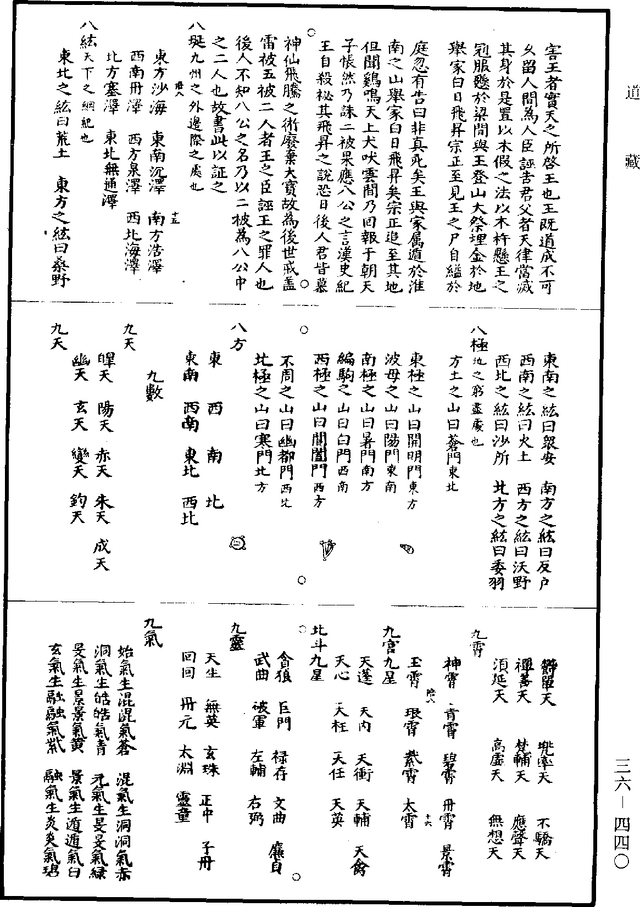 道藏
害王者實天之所啓王也王既道成不可
久留人間為人臣誣告君父者天律當滅
其身於是置以木假之法以木杵懸王之
冠服懸於梁間與王登山大祭埋金於地
舉家白日飛昇宗正至見王之尸自縊於
庭忽有告曰非真死矣王與家属遁於淮
南之山舉家白日飛昇矣宗正追至其地
但聞鷄鳴天上犬吠雲間乃回報于朝天
子悵然乃誅二被果應八公之言漢史紀
王自殺祕其飛昇之說恐日後人君皆慕
神仙飛騰之術廢棄大寶故為後世戒盖
雷被五被二人者王之臣誣王之罪人也
後人不知八公之名乃以二被為八公中
之二人也故書此以証之
八埏九州之外邊際之處也
東方沙海 東南沉澤 南方浩澤
西南丹澤 西方泉澤 西北海澤
北方塞澤 東北無通澤
八紘天下之綱紀也
東北之紘曰荒土 東方之紘曰桑野
東南之紘曰衆安 南方之紘曰反户
西南之紘曰火土 西方之紘曰沃野
西北之紘曰沙所 北方之紘曰委羽
八極地之窮盡處也
方土之山曰蒼門東北
東極之山曰開明門東方
波母之山曰陽門東南
南極之山曰暑門南方
編駒之山曰白門西南
西極之山曰閶闔門西方
不周之山曰幽都門西北
北極之山曰寒門北方
八方
東 西 南 北
東南 西南 東北 西北
九數
九天
皥天 陽天 赤天 朱天 成天
幽天 玄天 變天 鈞天
九天
鬱單天 兜率天 不驕天
禪善天 梵輔天 應聲天
須延天 高虛天 無想天
九霄
神霄 青霄 碧霄 丹霄 景霄
玉霄 琅霄 紫霄 太霄
九宮九星
天蓬 天内 天衝 天輔 天禽
天心 天柱 天任 天英
北斗九星
貪狼 巨門 禄存 文曲 廉貞
武曲 破軍 左輔 右弼
九靈
天生 無英 玄珠 正中 子丹
回回 丹元 太淵 靈童
九氣
始氣生混混氣蒼 混氣生洞洞氣赤
洞氣生皓皓氣青 元氣生旻旻氣緑
旻氣生景景氣黄 景氣生遁遁氣白
玄氣生融融氣紫 融氣生炎炎氣碧
三六—四四〇